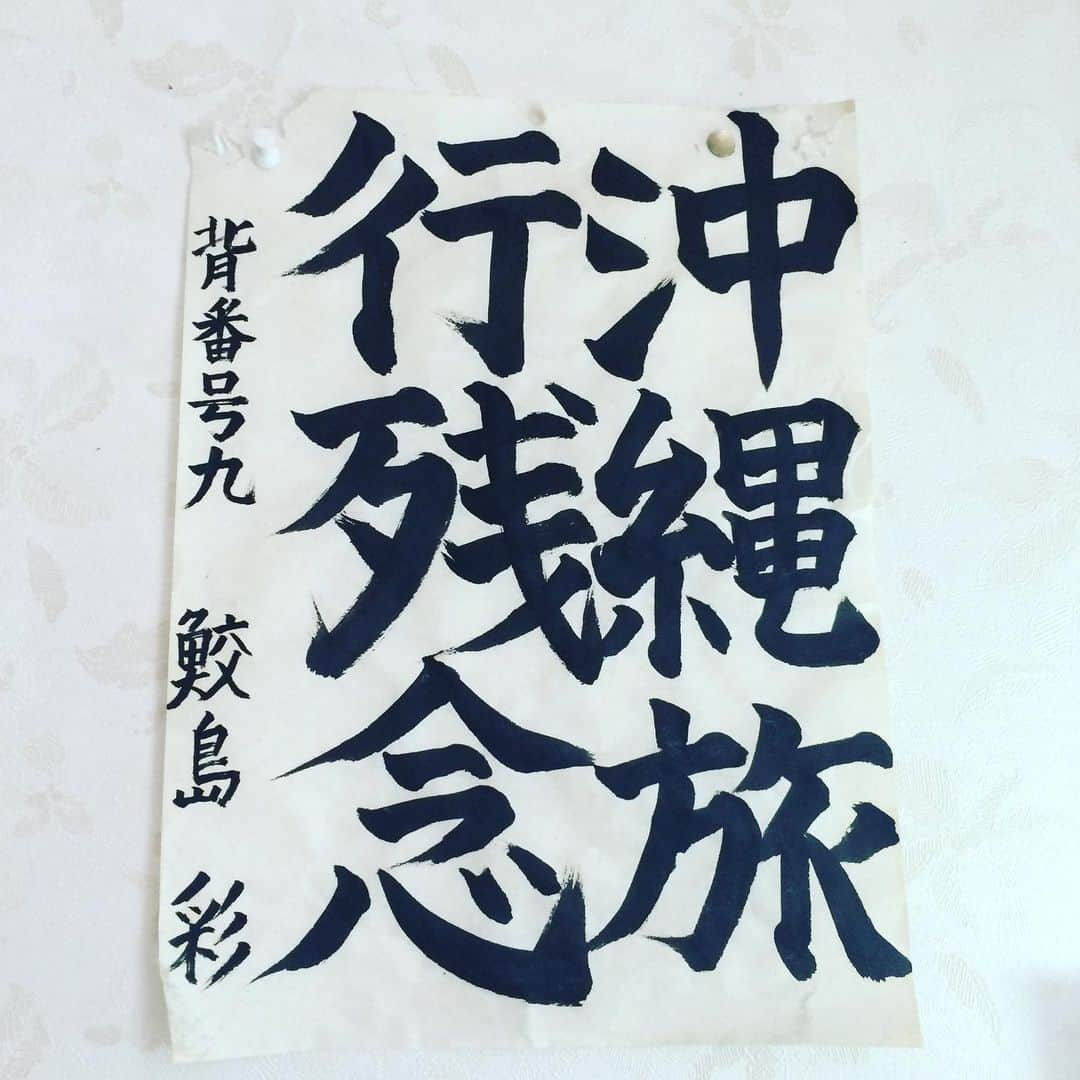 沖縄旅
行残念
背番号九 鮫島 彩